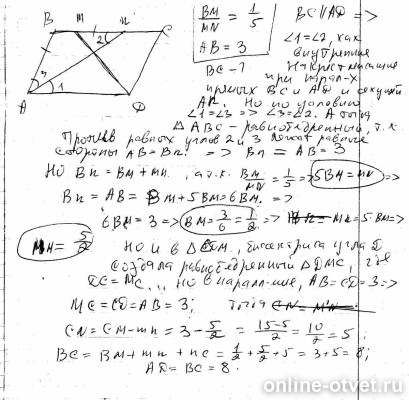 B M N C
2
3
1
A D
BM/MN = 1/5
AB = 3
BC - ?
BC ∥ AD =>
∠1=∠2, как
внутренние
накрест лежащие
при парал-х
прямых BC и AD и секущей
AN. Но по условию
∠1=∠3 => ∠3=∠2. А тогда
△ABC - равнобедренный, т.к.
Против равных углов 2 и 3 лежат равные
стороны AB=BN. => BN = AB = 3
Но BN = BM + MN, а т.к. BM/MN = 1/5 => 5BM = MN =>
BN = AB = BM + 5BM = 6BM. =>
6BM = 3 => BM = 3/6 = 1/2. => MN = 5BM =>
MN = 5/2
Но и в △CDM, биссектриса угла D
создала равнобедренный △DMC, где
DC = MC. Но в паралл-ме, AB = CD = 3 =>
MC = CD = AB = 3; тогда
CN = CM - MN = 3 - 5/2 = 15-5/2 = 10/2 = 5;
BC = BM + MN + NC = 1/2 + 5/2 + 5 = 3 + 5 = 8;
AD = BC = 8.
online-otvet.ru